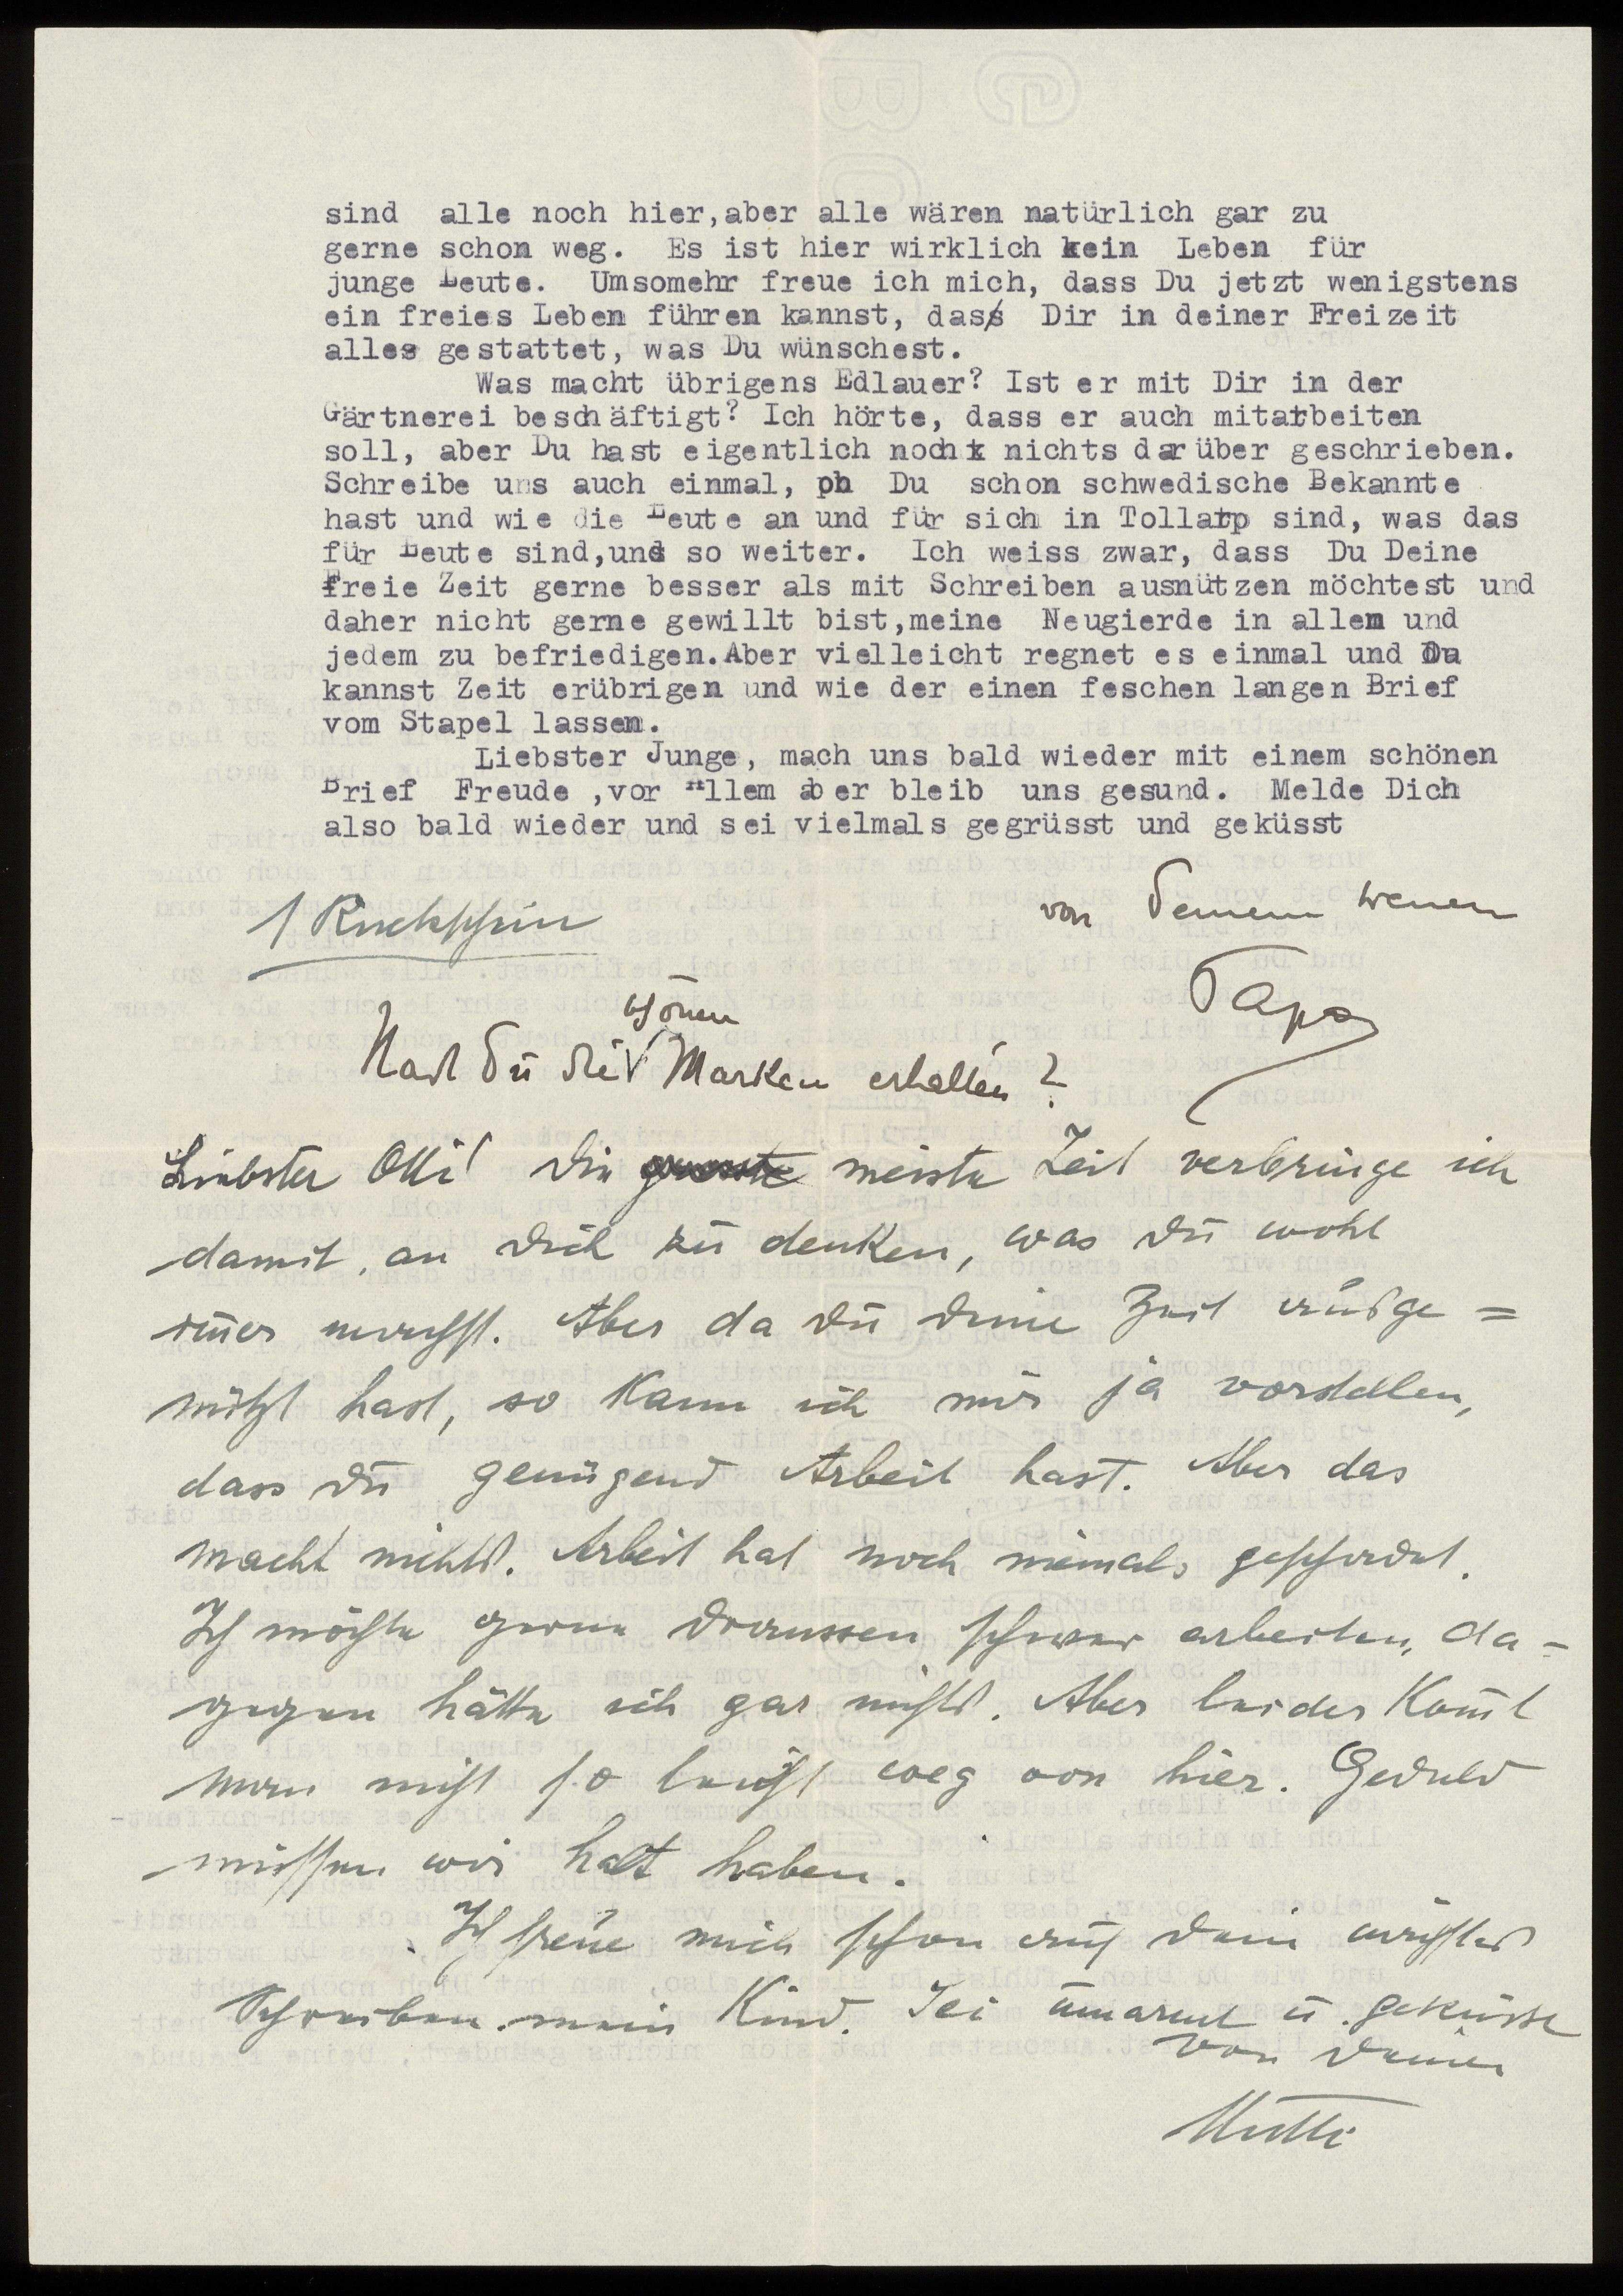 sind alle noch hier,aber alle wären natürlich gar zu
gerne schon weg. Es ist hier wirklich kein Leben für
junge Leute. Umsomehr freue ich mich, dass Du jetzt wenigstens
ein freies Leben führen kannst, das Dir in deiner Freizeit
alles gestattet, was Du wünschest.
Was macht übrigens Edlauer? Ist er mit Dir in der
Gärtnerei beschäftigt? Ich hörte, dass er auch mitarbeiten
soll, aber Du hast eigentlich noch nichts darüber geschrieben.
Schreibe uns auch einmal, ob Du schon schwedische Bekannte
hast und wie die Leute an und für sich in Tollarp sind, was das
für Leute sind,und so weiter. Ich weiss zwar, dass Du Deine
freie Zeit gerne besser als mit Schreiben ausnützen möchtest und
daher nicht gerne gewillt bist,meine Neugierde in allem und
jedem zu befriedigen.Aber vielleicht regnet es einmal und Du
kannst Zeit erübrigen und wie der einen feschen langen Brief
vom Stapel lassen.
Liebster Junge, mach uns bald wieder mit einem schönen
Brief Freude ,vor Allem aber bleib uns gesund. Melde Dich
also bald wieder und sei vielmals gegrüsst und geküsst
von Deinem treuen
1 Rückschein
Papa
schönen
Hast Du die Marken erhalten?
Liebster Otti! Die meiste Zeit verbringe ich
damit, an Dich zu denken, was Du wohl
im̄er machst. Aber da Du Deine Zeit ausge=
nützt hast, so kann ich mir ja vorstellen,
dass Du genügend Arbeit hast. Aber das
macht nichts. Arbeit hat noch niemals geschadet.
Ich möchte gerne draussen schwer arbeiten, da-
gegen hätte ich gar nichts. Aber leider kom̄t
man nicht so leicht weg von hier. Geduld
müssen wir halt haben.
Ich freue mich schon auf Dein nächstes
Schreiben mein Kind. Sei umarmt u. geküsst
von Deiner
Mutti